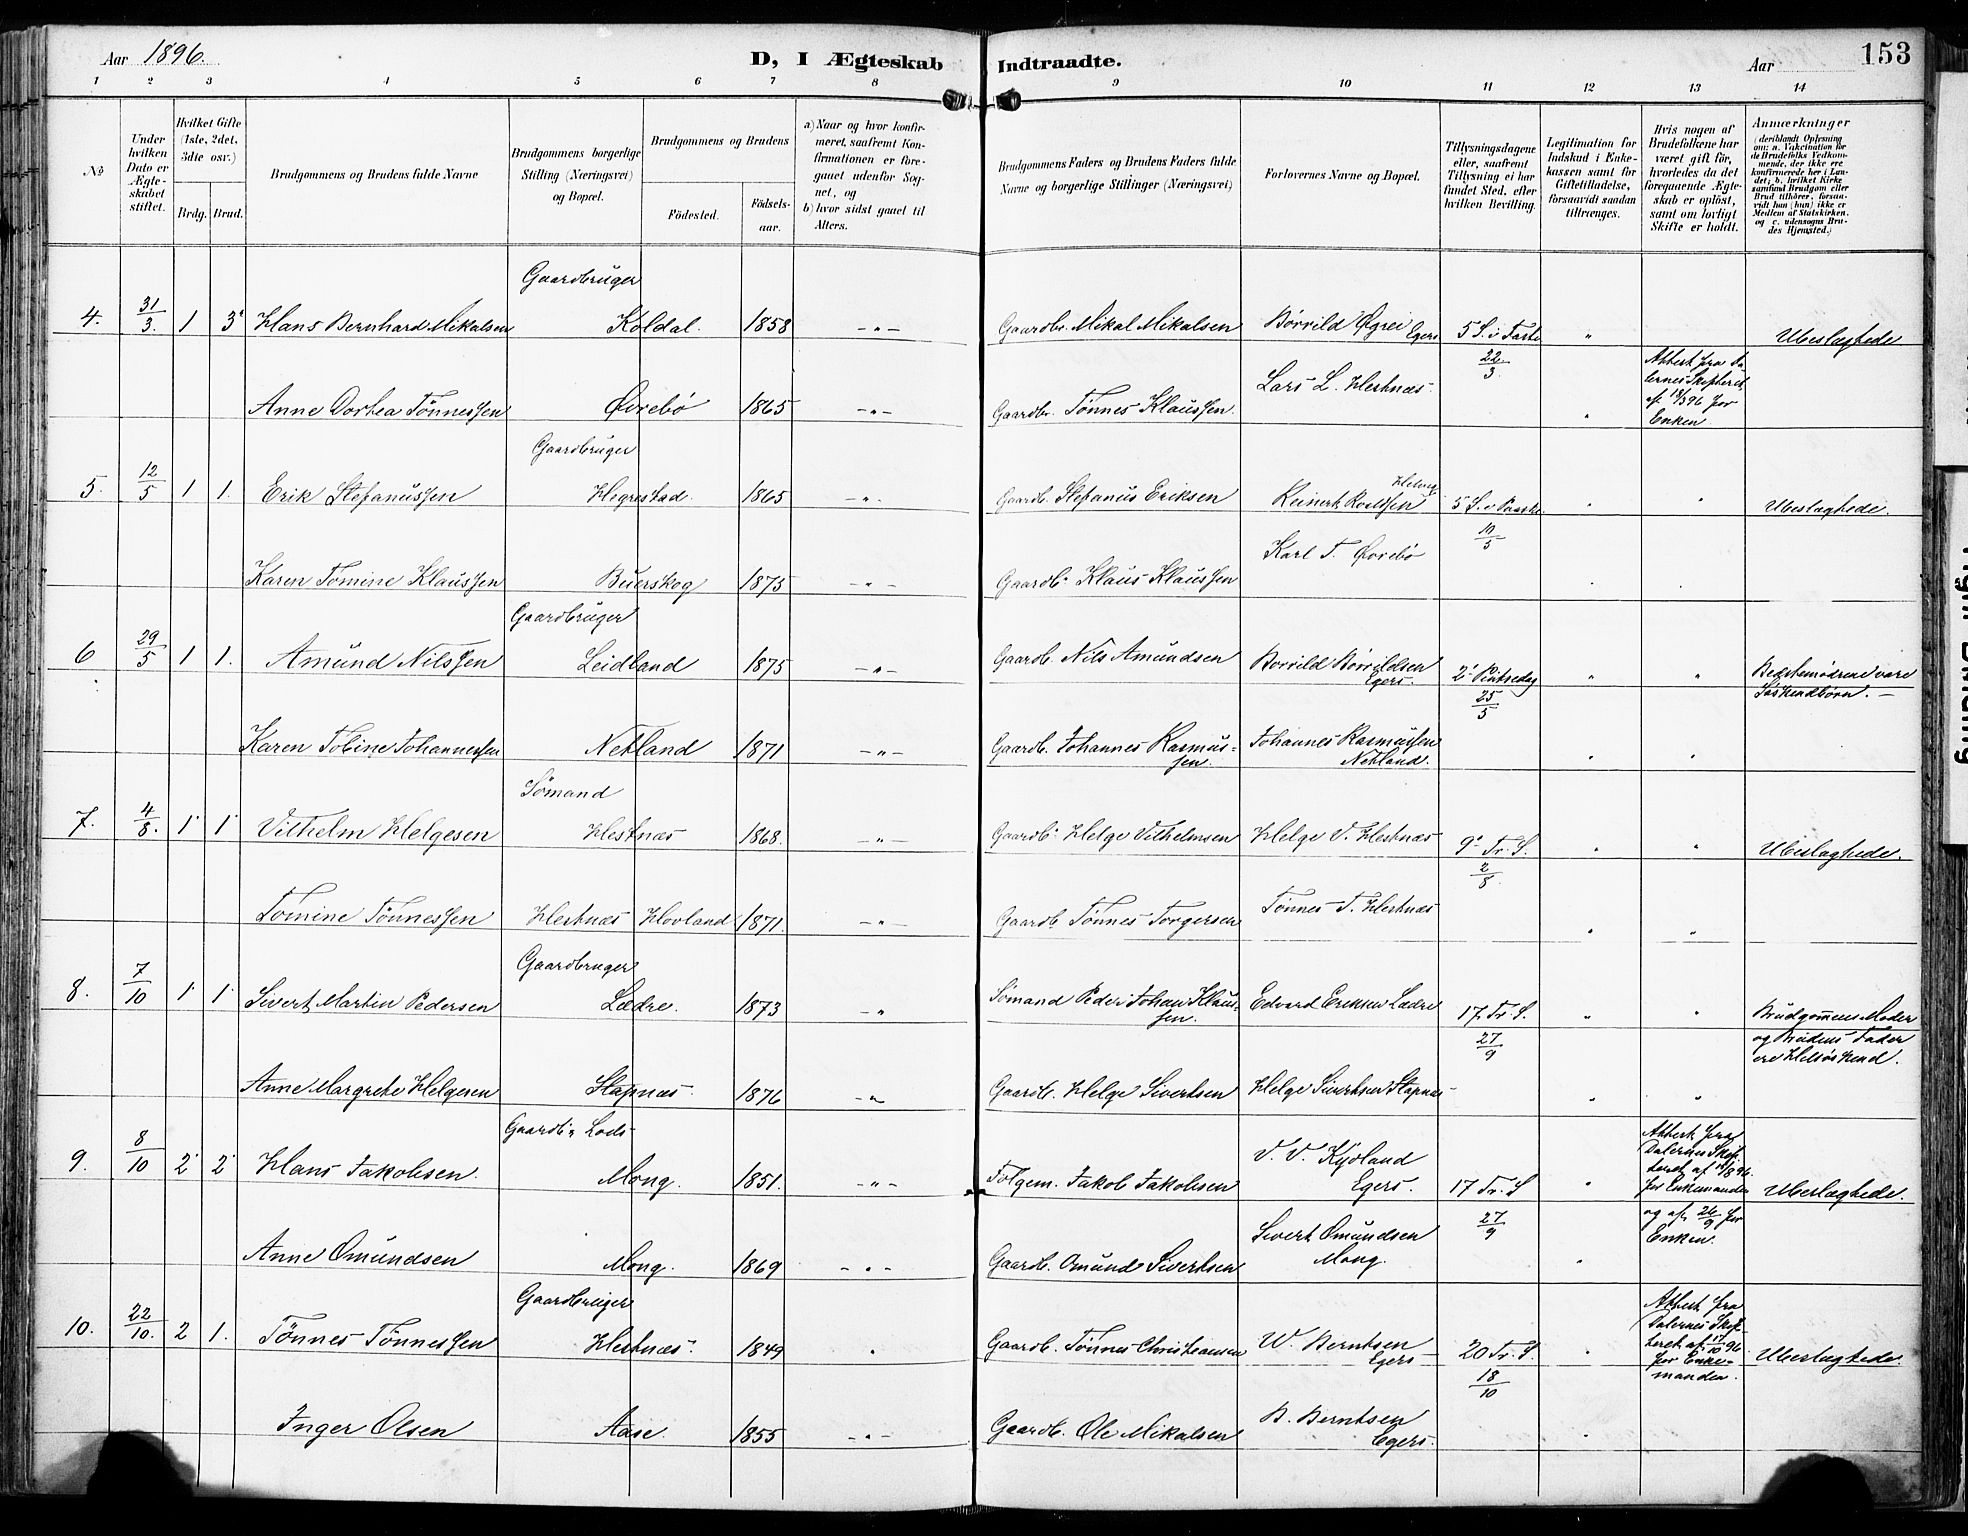 Aar 1896.
D, I Ægteskab Indtraadte.
Aar
153
1 2 3 4 5 6 7 8 9 10 11 12 13 14
No
Under hvilken Dato er Ægteskabet stiftet.
Hvilket Gifte (1ste, 2det, 3dte osv.)
Brdg. Brud.
Brudgommens og Brudens fulde Navne
Brudgommens borgerlige Stilling (Næringsvei) og Bopæl.
Brudgommens og Brudens
Födested.
Födsels-aar.
a) Naar og hvor konfirmeret, saafremt Konfirmationen er foregaaet udenfor Sognet, og
b) hvor sidst gaaet til Alters.
Brudgommens Faders og Brudens Faders fulde Navne og borgerlige Stillinger (Næringsvei)
Forlovernes Navne og Bopæl.
Tillysningsdagene eller, saafremt Tillysning ei har fundet Sted, efter hvilken Bevilling.
Legitimation for Indskud i Enkekassen samt for Giftetilladelse, forsaavidt saadan tiltrænges.
Hvis nogen af Brudefolkene har været gift för, hvorledes da det foregaaende Ægteskab er oplöst, samt om lovligt Skifte er holdt.
Anmærkninger (deriblandt Oplysning om: a. Vakcination for de Brudefolks Vedkommende, der ikke er konfirmerede her i Landet; b. hvilket Kirkesamfund Brudgom eller Brud tilhörer, forsaavidt han (hun) ikke er Medlem af Statskirken, og c. udensogns Brudes Hjemsted.)
Gaardbruger
4. 31/3. 1 3' Hans Bernhard Mikalsen Koldal. 1858 -"- Gaardbr. Mikal Mikalsen Börrild Øgrei Egers 5 S. i Faste 22/3. " Ubeslægtede
Anne Dortea Tönnessen Övrebö 1865 -"- Gaardbr. Tönnes Klaussen. Lars L. Hestnæs. " Attest fra Dalernes Skifteret af 18/3 96 for Enken
Gaardbruger
5. 12/5 1 1. Erik Stefanussen Hegrestad. 1865 -"- Gaardb. Stefanus Eriksen Reinert Roaldsen 5 S. e Paaske 10/5 " " Ubeslægtede.
Karen Tomine Klaussen Buerskog 1875 -"- Gaardb. Klaus Klaussen Karl T. Övrebö
Gaardbruger
6 29/5 1 1. Amund Nilssen Leidland 1875 -"- Gaardb. Nils Amundsen Borrild Börrildsen Egers. 2' Pintsedag 25/5 " " Bedstemödrene vare Söskendbörn. -
Karen Tobine Johannessen Netland 1871 -"- Gaardb. Johannes Rasmussen. Johannes Rasmussen Netland. " "
Sömand
7. 4/8. 1 1 Vilhelm Helgesen Hestnæs 1868. -"- Gaardb. Helge Vilhelmsen Helge V. Hestnæs 9' Tr. S. 2/8 " " Ubeslægtede.
Tomine Tönnessen Hestnæs Hovland 1871. -"- Gaardb. Tönnes Torgersen Tönnes T. Hestnæs " "
Gaardbruger
8. 7/10 1 1 Sivert Martin Pedersen Lædre. 1873 -" Sömand Peder Johan Klaussen. Edvard Eriksen Lædre 17. Tr. S. 27/9 " " Brudgommens Moder og Brudens Fader ere Helsöskend.
Anne Margrete Helgesen Stapnæs. 1876 -"- Gaardb. Helge Sivertsen Helge Sivertsen Stapnæs " "
Gaardb. & Lods
9. 8/10 2 2 Hans Jakobsen. Mong. 1851. -"- Fölgem. Jakob Jakobsen V. V. Kydland Egers. 17 Tr. S 27/9 " Attest fra Dalernes Skifteret af 19/8 96. for Enkemanden og af 26/9 for Enken. Ubeslægtede.
Anne Omundsen Mong. 1869 -"- Gaardb. Omund Sivertsen Sivert Omundsen Mong. "
Gaardbruger
10. 22/10. 2 1. Tönnes Tönnessen Hestnæs. 1849 " Gaardb. Tönnes Christeansen W. Berntsen Egers 20 Tr. S. 18/10 " Attest fra Dalernes Skifteret af 17/10 96. for Enkemanden. Ubeslægtede.
Inger Olsen Aase. 1855 -"- Gaardb. Ole Mikalsen B. Berntsen Egers. "